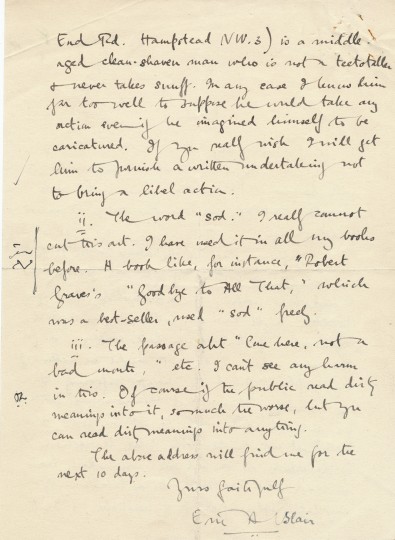 End Rd. Hampstead NW.3) is a middle-
aged clean-shaven man who is not a teetotaller
& never takes snuff. In any case I know him
far too well to suppose he would take any
action even if he imagined himself to be
caricatured. If you really wish I will get
him to furnish a written undertaking not
to bring a libel action.
ii. The word "sod." I really cannot
cut this out. I have used it in all my books
before. A book like, for instance, "Robert
Graves's "Goodbye to All That," which
was a best-seller, used "sod" freely.
iii. The passage abt "Come here, not a
bad" etc. I can't see any harm
in this. Of course if the public read dirty
meanings into it, so much the worse, but you
can read dirty meanings into anything.
The above address will find me for the
next 10 days.
Yours faithfully
Eric A Blair